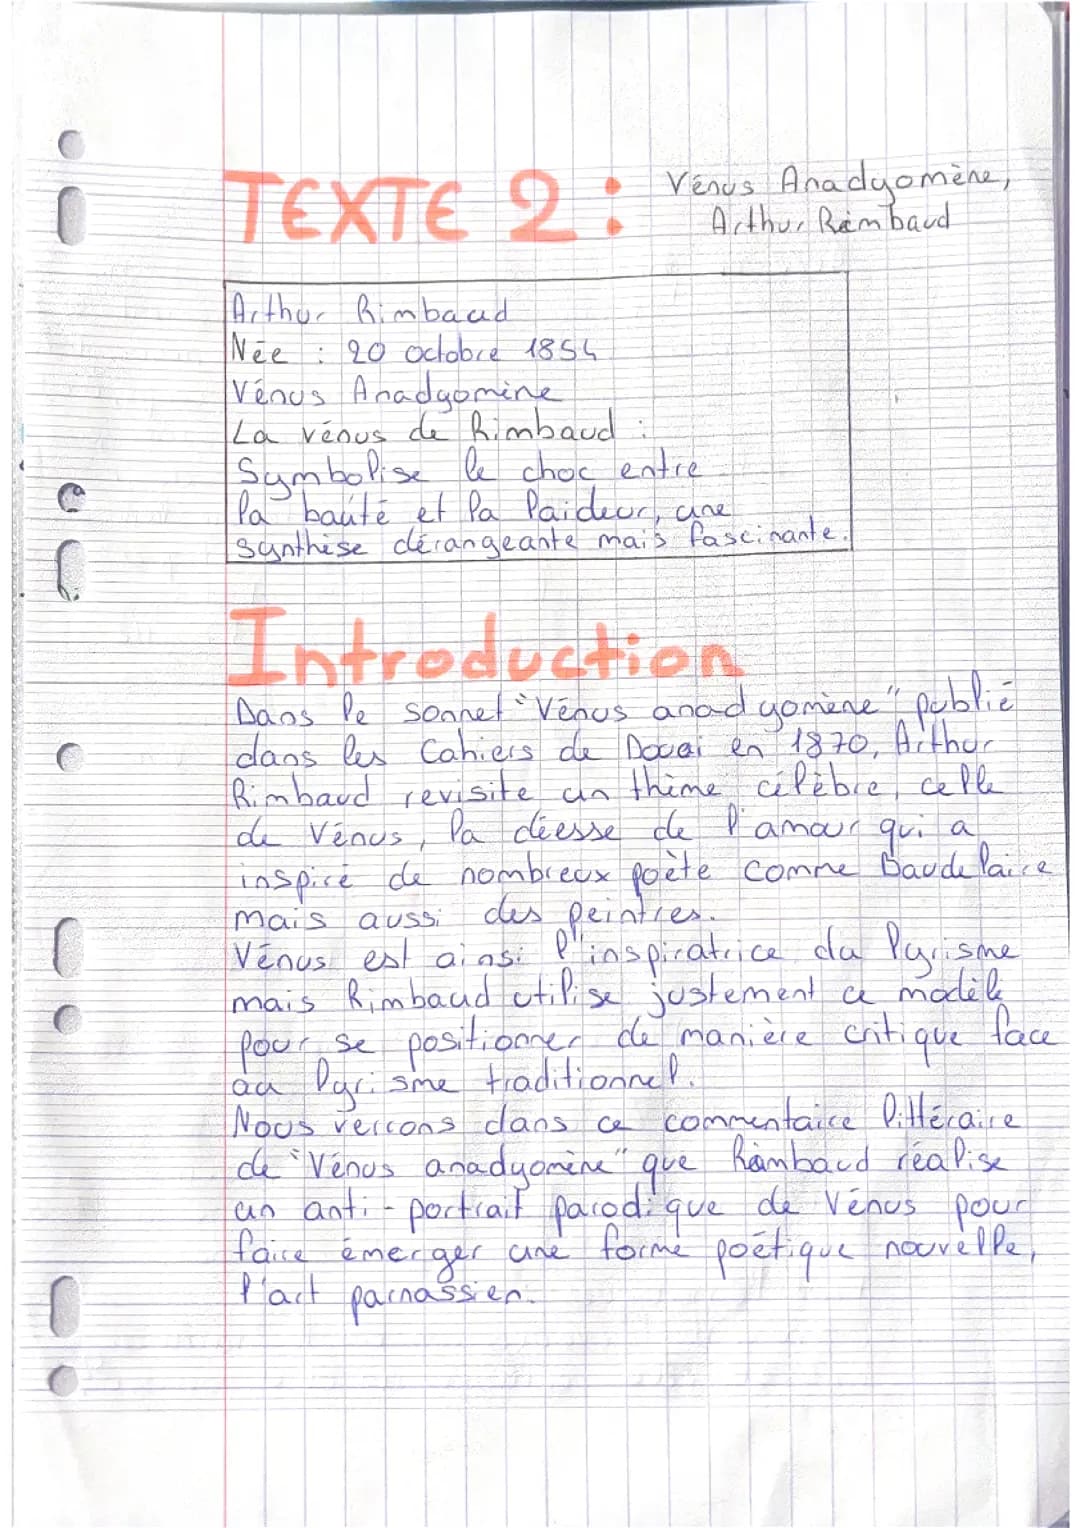 TEXTE 2 : Vénus Anadyomène,
Arthur Rimbaud
Arthur Rimbaud
Née : 20 octobre 1854
Vénus Anadyomine
La vénus de Rimbaud :
Symbolise le choc entre
la bauté et la laideur, une
synthèse dérangeante mais fascinante.
Introduction
Dans le sonnet "Vénus anadyomène" publié
dans les Cahiers de Douai en 1870, Arthur
Rimbaud revisite un thème célèbre, celle
de Vénus, la déesse de l'amour qui a
inspiré de nombreux poète comme Baudelaire
mais aussi des peintres.
Vénus est ainsi l'inspiratrice du lyrisme
mais Rimbaud utilise justement ce modèle
pour se positionner de manière critique face
au lyrisme traditionnel.
Nous verrons dans ce commentaire littéraire
de "Vénus anadyomène" que Rimbaud réalise
un anti-portrait parodique de Vénus pour
faire émerger une forme poétique nouvelle,
l'art parnassien.